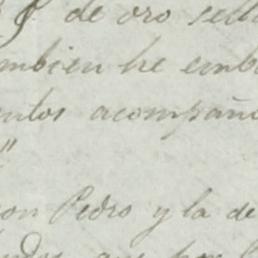 de oro sell
mbien he emb
entos acompaño
"
on Pedro y la de
que por l